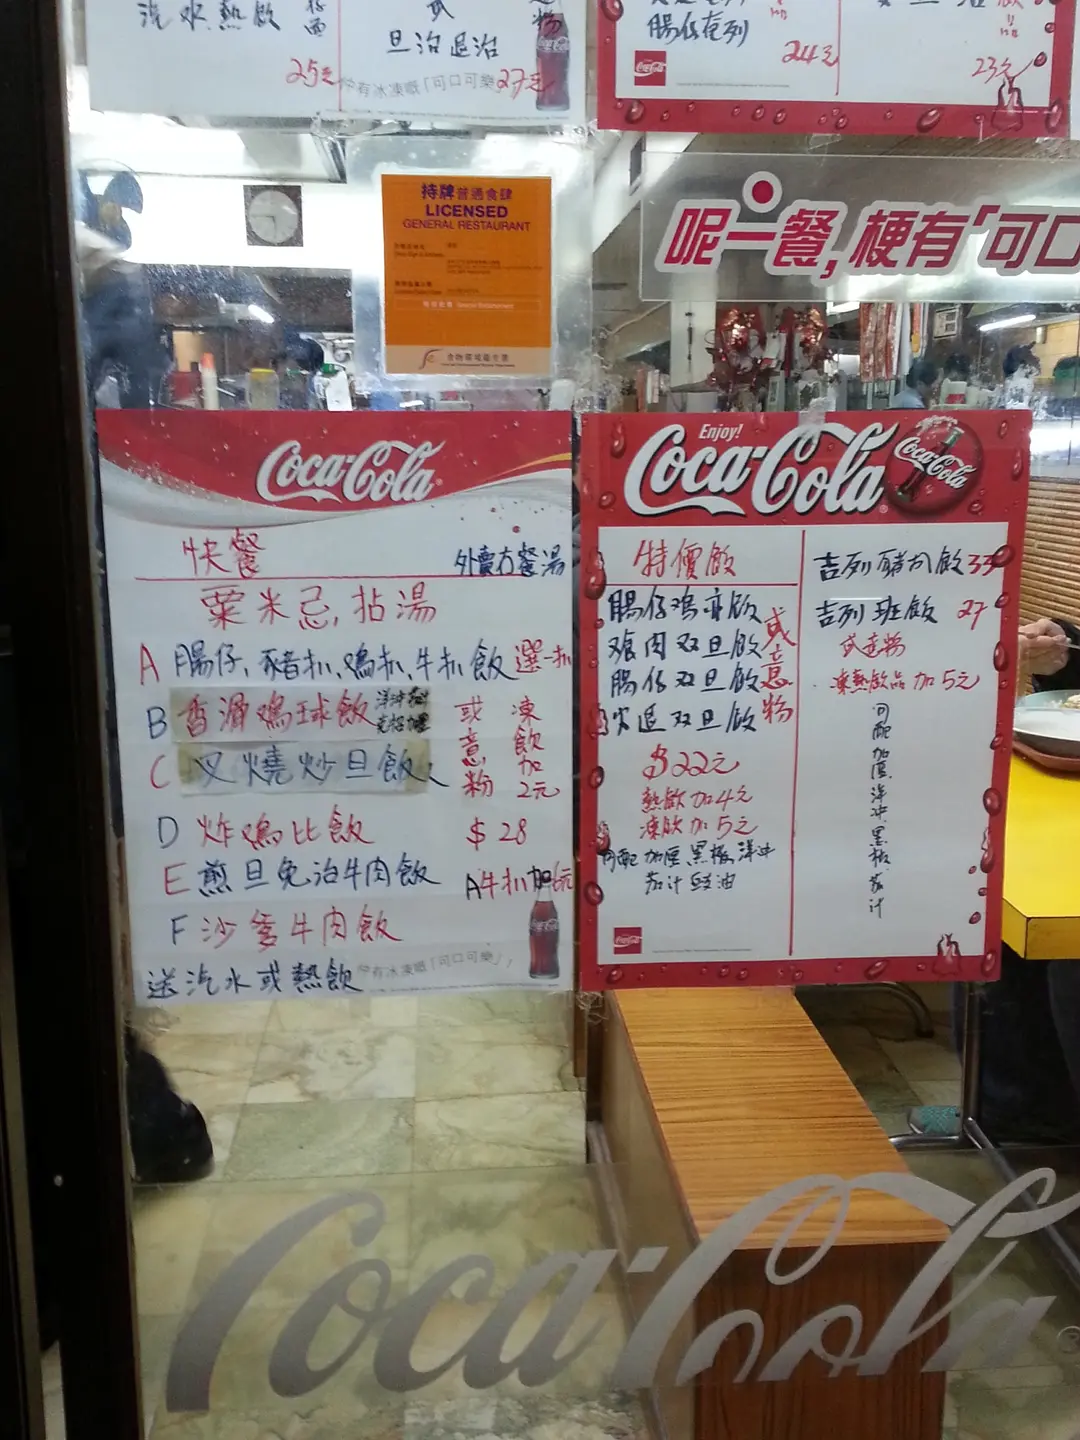 汽水熱飲
25元
或
旦治退治
27元
仲有冰凍嘅「可口可樂
腸仔
24元
23元
Coca-Cola
持牌普通食肆
LICENSED
GENERAL RESTAURANT
食物環境衞生署
呢一餐,梗有「可口
Coca-Cola
快餐
外賣冇餐湯
粟米忌, 拈湯
A 腸仔、豬扒、鸡扒、牛扒飯 選一扒
B 香滑鸡球飯
C 叉燒炒旦飯
或意粉
凍飲加2元
D 炸鸡比飯
$28
E 煎旦免治牛肉飯
A牛扒加6元
F 沙爹牛肉飯
送汽水或熱飲
仲有冰凍嘅「可口可樂」!
Enjoy!
Coca-Cola
Coca-Cola
特價飯
腸仔鸡亦飯
飡肉双旦飯
腸仔双旦飯
火退双旦飯
或意粉
$22元
熱飲加4元
凍飲加5元
可配 加厘 黑椒 洋冲
茄汁 豉油
吉列豬扒飯 33
吉列班飯 27
或意粉
凍熱飲品加5元
可配加厘洋冲黑椒茄汁
Coca-Cola
Coca-Cola